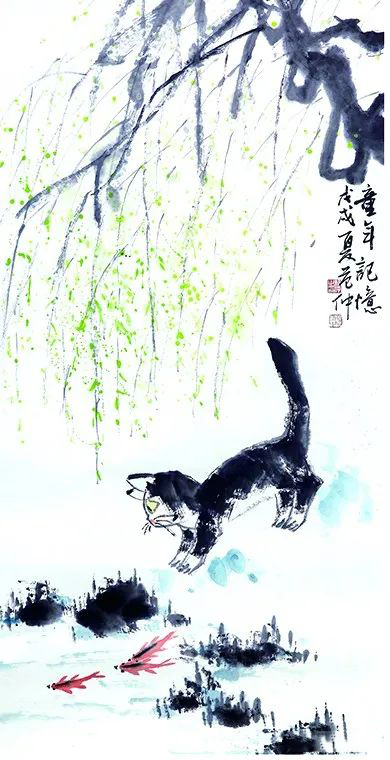 童年記憶
戊戌夏范仲